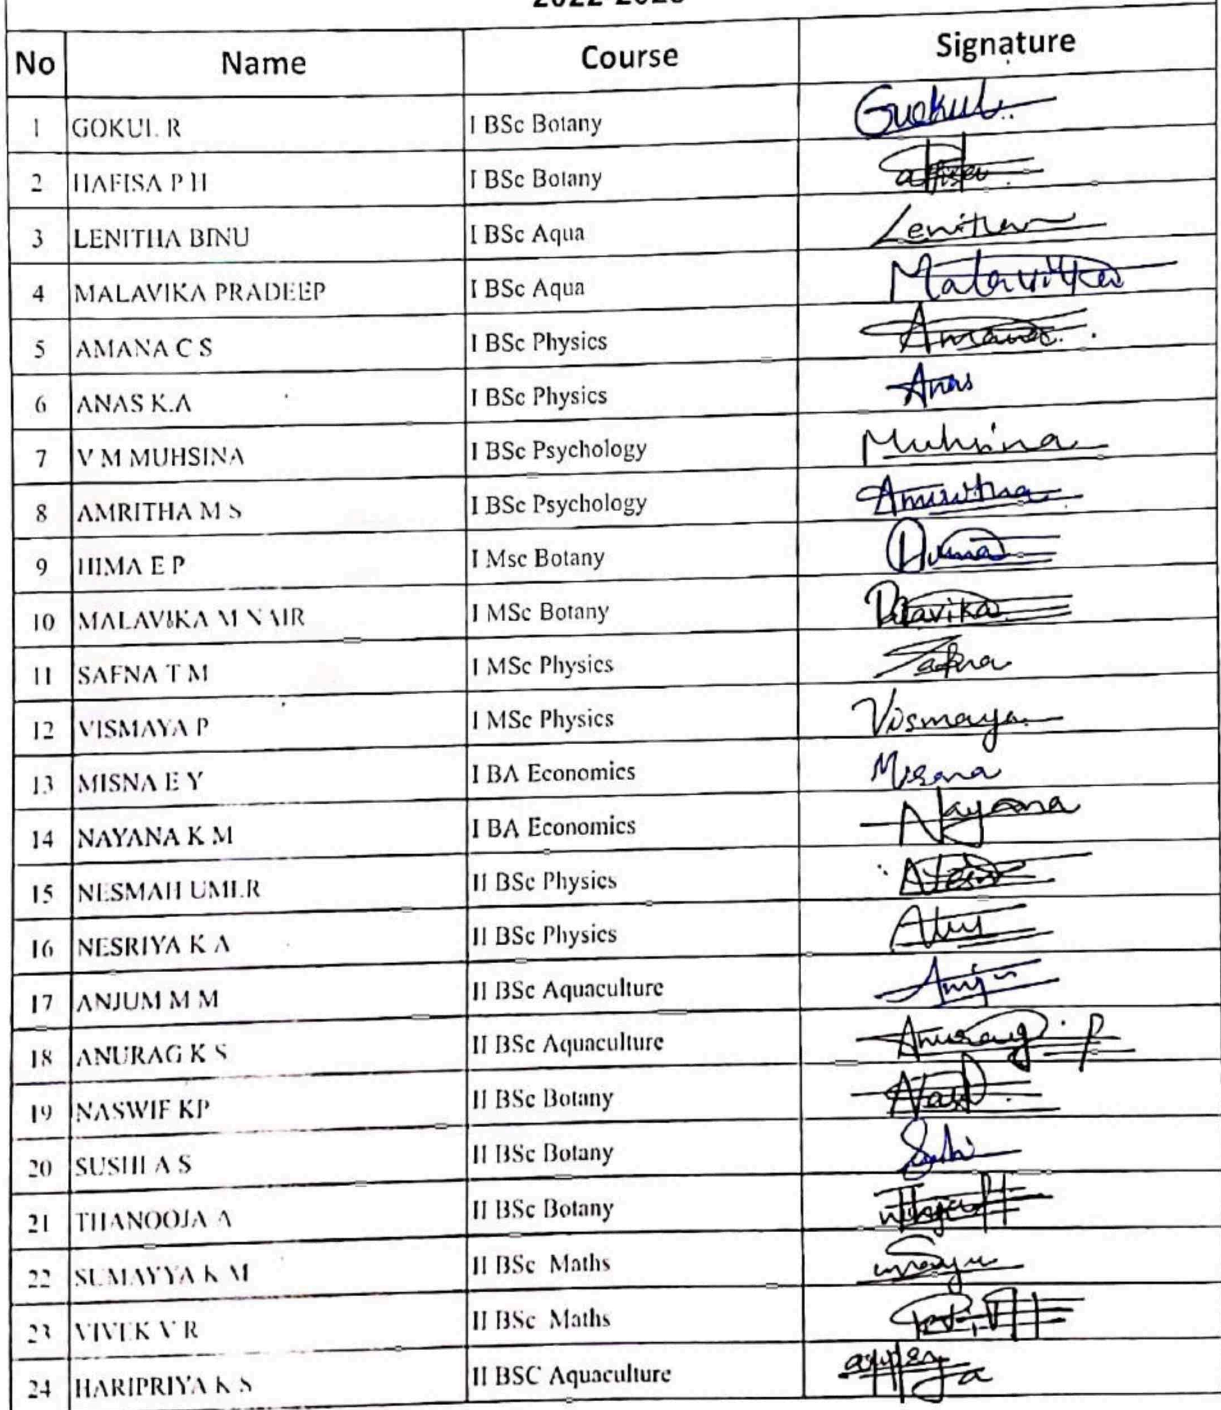 2022-2023
No Name Course Signature
1 GOKUL R I BSc Botany Guokul
2 HAFISA P H I BSc Botany
3 LENITHA BINU I BSc Aqua Lenitha
4 MALAVIKA PRADEEP I BSc Aqua Malavika
5 AMANA C S I BSc Physics Amana
6 ANAS K.A I BSc Physics Anas
7 V M MUHSINA I BSc Psychology Muhsina
8 AMRITHA M S I BSc Psychology Amritha
9 HIMA E P I Msc Botany Hima
10 MALAVIKA M NAIR I MSc Botany
11 SAFNA T M I MSc Physics Safna
12 VISMAYA P I MSc Physics Vismaya
13 MISNA E Y I BA Economics Misna
14 NAYANA K M I BA Economics Nayana
15 NESMAH UMLR II BSc Physics
16 NESRIYA K A II BSc Physics
17 ANJUM M M II BSc Aquaculture Anju
18 ANURAG K S II BSc Aquaculture Anurag
19 NASWIF KP II BSc Botany
20 SUSHI A S II BSc Botany
21 THANOOJA A II BSc Botany
22 SUMAYYA K M II BSc Maths
23 VIVEK V R II BSc Maths
24 HARIPRIYA K S II BSC Aquaculture